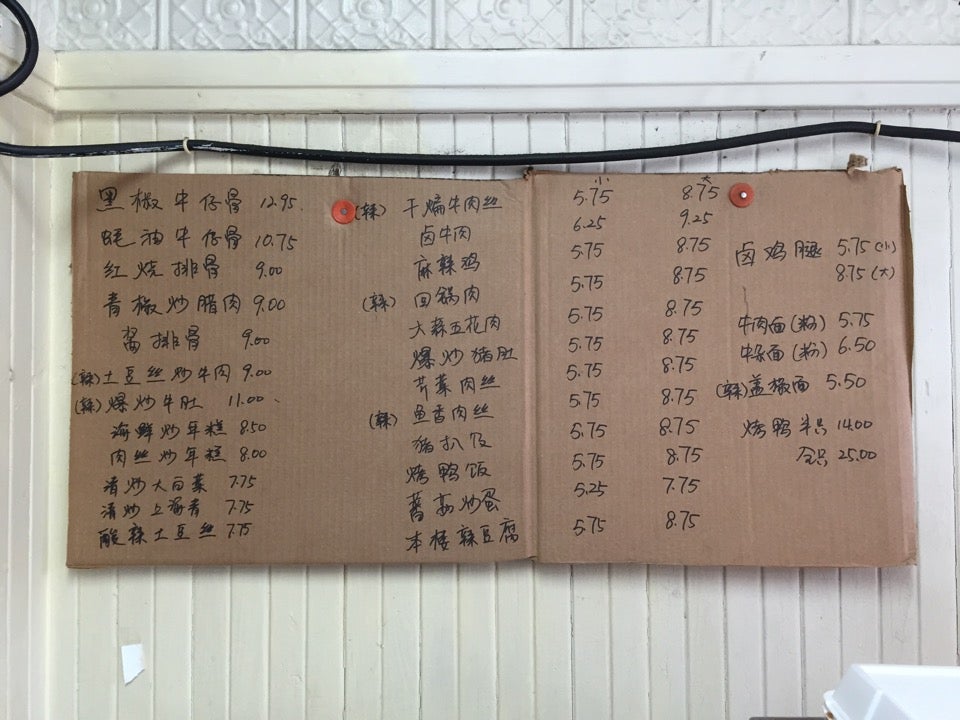 黑椒牛仔骨 12.95
蚝油牛仔骨 10.75
红烧排骨 9.00
青椒炒腊肉 9.00
排骨 9.00
(辣)土豆丝炒牛肉 9.00
(辣)爆炒牛肚 11.00
海鲜炒年糕 8.50
肉丝炒年糕 8.00
清炒大白菜 7.75
清炒上海青 7.75
酸辣土豆丝 7.75
小 大
(辣) 干煸牛肉丝 5.75 8.75
卤牛肉 6.25 9.25
麻辣鸡 5.75 8.75
(辣) 回锅肉 5.75 8.75
大蒜五花肉 5.75 8.75
爆炒猪肚 5.75 8.75
芹菜肉丝 5.75 8.75
(辣) 鱼香肉丝 5.75 8.75
猪扒饭 5.75 8.75
烤鸭饭 5.75 8.75
蕃茄炒蛋 5.25 7.75
本楼辣豆腐 5.75 8.75
卤鸡腿 5.75(小)
8.75(大)
牛肉面(粉) 5.75
面(粉) 6.50
(辣)盖椒面 5.50
烤鸭 半只 14.00
全只 25.00